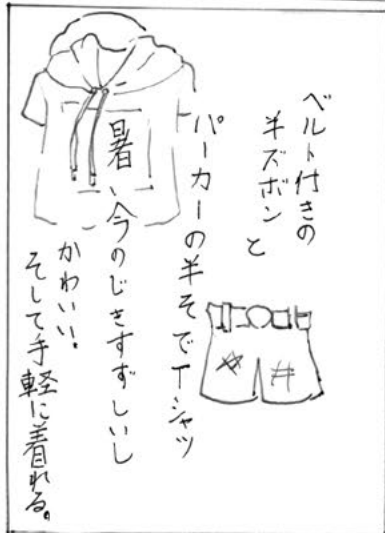 ベルト付きの
半ズボン と
パーカーの半そでTシャツ
暑
今のじきすずしいし
かわいい。
そして手軽に着れる。